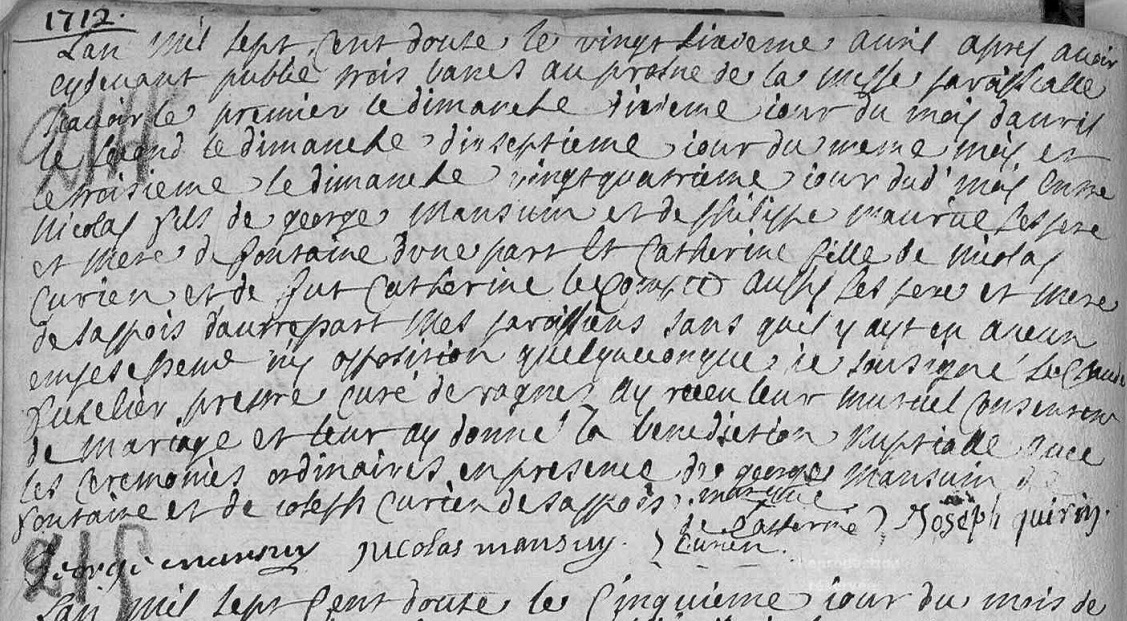 1712.
Lan mil sept cent douze le vingt sixieme avril apres avoir
cydevant publié trois bancs au prosne de la messe paroissialle
scavoir le premier le dimanche dixieme iour du mois davril
214
le second le dimanche dixseptieme iour du meme mois et
le troisieme le dimanche vingtquatrieme iour dud' mois Entre
Nicolas fils de george Mansuin et de philippe maurice ses pere
et Mere de fontaine dune part Et Catherine fille de nicolas
Curien et de fut Catherine aussy ses pere et mere
de sappois dautrepart Mes paroissiens sans quil y ayt eu aucun
empeschemt ny opposition quelqueconque ie soussigné
fuzelier prestre curé de vagney ay receu leur mutuel consentemt
de Mariage et leur ay donné la benediction Nuptialle avec
les Ceremonies ordinaires en presence de george Mansuin de
fontaine et de ioseph Curien de sappois marque
de Catherine Joseph quirin.
George mansuy nicolas mansuy. Curien.
215
Lan mil sept Cent douze le Cinquieme iour du mois de